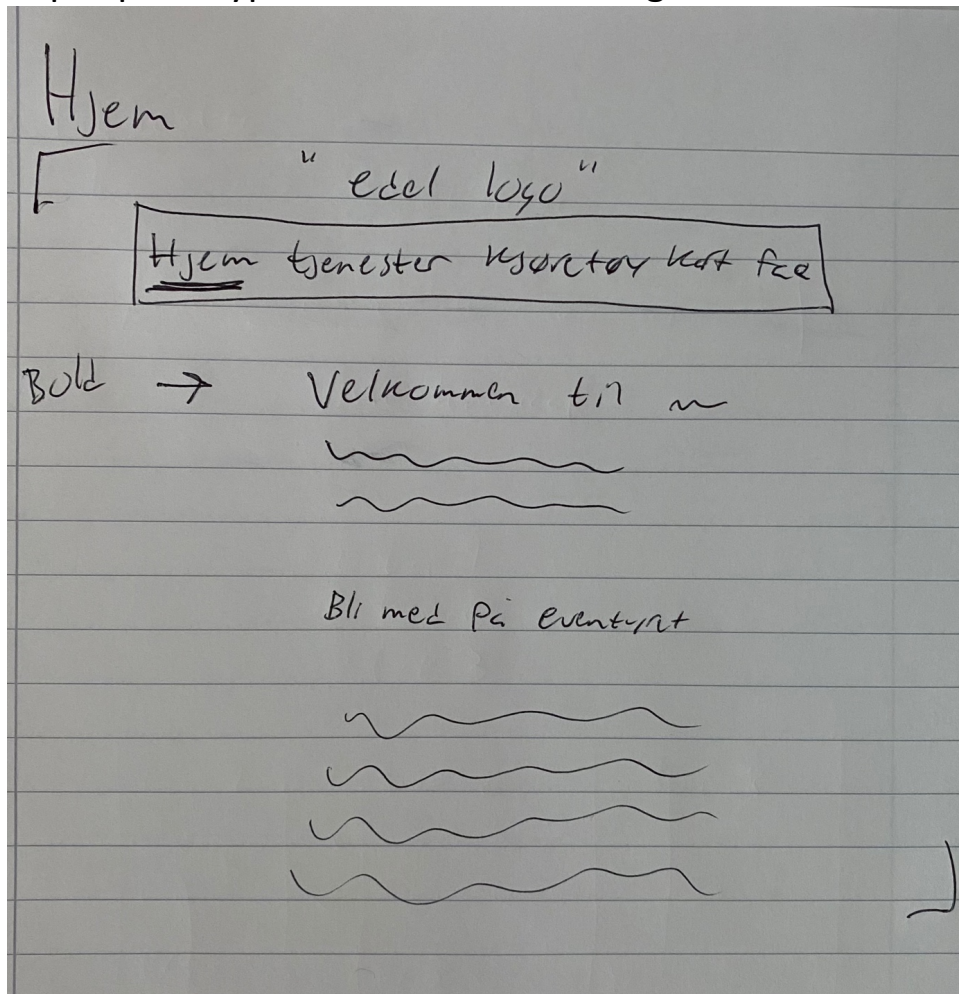 Hjem
"edel logo"
Hjem tjenester kjøretøy kart faq
Bold → Velkommen til
Bli med på eventyret